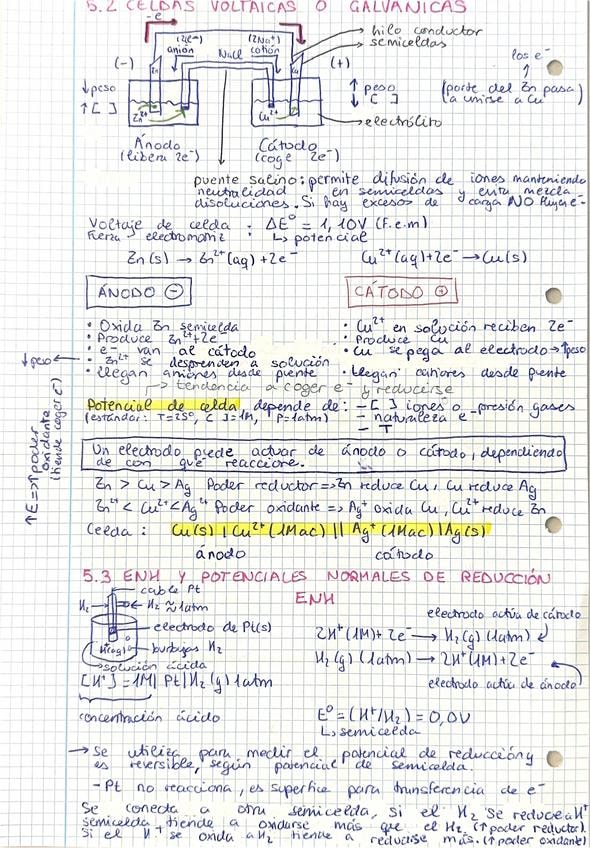 5.2 CELDAS VOLTAICAS O GALVÁNICAS
-e
(2Cl-) anión
NaCl
(2Na+) catión
hilo conductor
semiceldas
(-)
(+)
Zn
Cu
↓peso
↑[ ]
Zn²⁺
Cu²⁺
↑ peso
↓[ ]
los e⁻
(parte del Zn pasa)
(a unirse a Cu)
electrólito
Ánodo
(libera 2e⁻)
Cátodo
(coge 2e⁻)
puente salino: permite difusión de iones manteniendo
neutralidad en semiceldas y evita mezcla
disoluciones. Si hay excesos de carga NO fluye e⁻
Voltaje de celda : ΔE° = 1,10V (F.e.m)
Fuerza electromotriz ↳ potencial
Zn(s) → Zn²⁺(aq) + 2e⁻
Cu²⁺(aq) + 2e⁻ → Cu(s)
ÁNODO ⊖
CÁTODO ⊕
• Oxida Zn semicelda
• Produce Zn²⁺ + 2e⁻
• e⁻ van al cátodo
↓peso ← • Zn²⁺ se desprenden a solución
• Llegan aniones desde puente
• Cu²⁺ en solución reciben 2e⁻
• Produce Cu
• Cu se pega al electrodo → ↑peso
• Llegan cationes desde puente
↳ tendencia a coger e⁻ y reducirse
Potencial de celda depende de: - [ ] iones o -presión gases
(estándar: T=25°, C=1M, P=1atm)
- naturaleza e⁻
- T
↑E => ↑poder oxidante (tiende coger e⁻)
Un electrodo puede actuar de ánodo o cátodo, dependiendo
de con que reaccione.
Zn > Cu > Ag Poder reductor => Zn reduce Cu, Cu reduce Ag
Zn²⁺ < Cu²⁺ < Ag²⁺ Poder oxidante => Ag⁺ oxida Cu, Cu²⁺ reduce Zn
Celda : Cu(s) | Cu²⁺(1Mac) || Ag⁺(1Mac) | Ag(s)
ánodo
cátodo
5.3 ENH Y POTENCIALES NORMALES DE REDUCCIÓN
ENH
cable Pt
H₂ →
← H₂ ≈ 1atm
electrodo de Pt(s)
H⁺(aq)
burbujas H₂
solución ácida
[H⁺] = 1M | Pt | H₂(g) 1atm
concentración ácido
electrodo actúa de cátodo
2H⁺(1M) + 2e⁻ → H₂(g) (1atm)
H₂(g) (1atm) → 2H⁺(1M) + 2e⁻
electrodo actúa de ánodo
E° = (H⁺/H₂) = 0,0V
↳ semicelda
→ Se utiliza para medir el potencial de reducción y
es reversible, según potencial de semicelda.
- Pt no reacciona, es superficie para transferencia de e⁻
Se conecta a otra semicelda, si el H₂ se reduce a H⁺
semicelda tiende a oxidarse más que el H₂. (↑poder reductor).
Si el H⁺ se oxida a H₂ tiende a reducirse más. (↑poder oxidante)